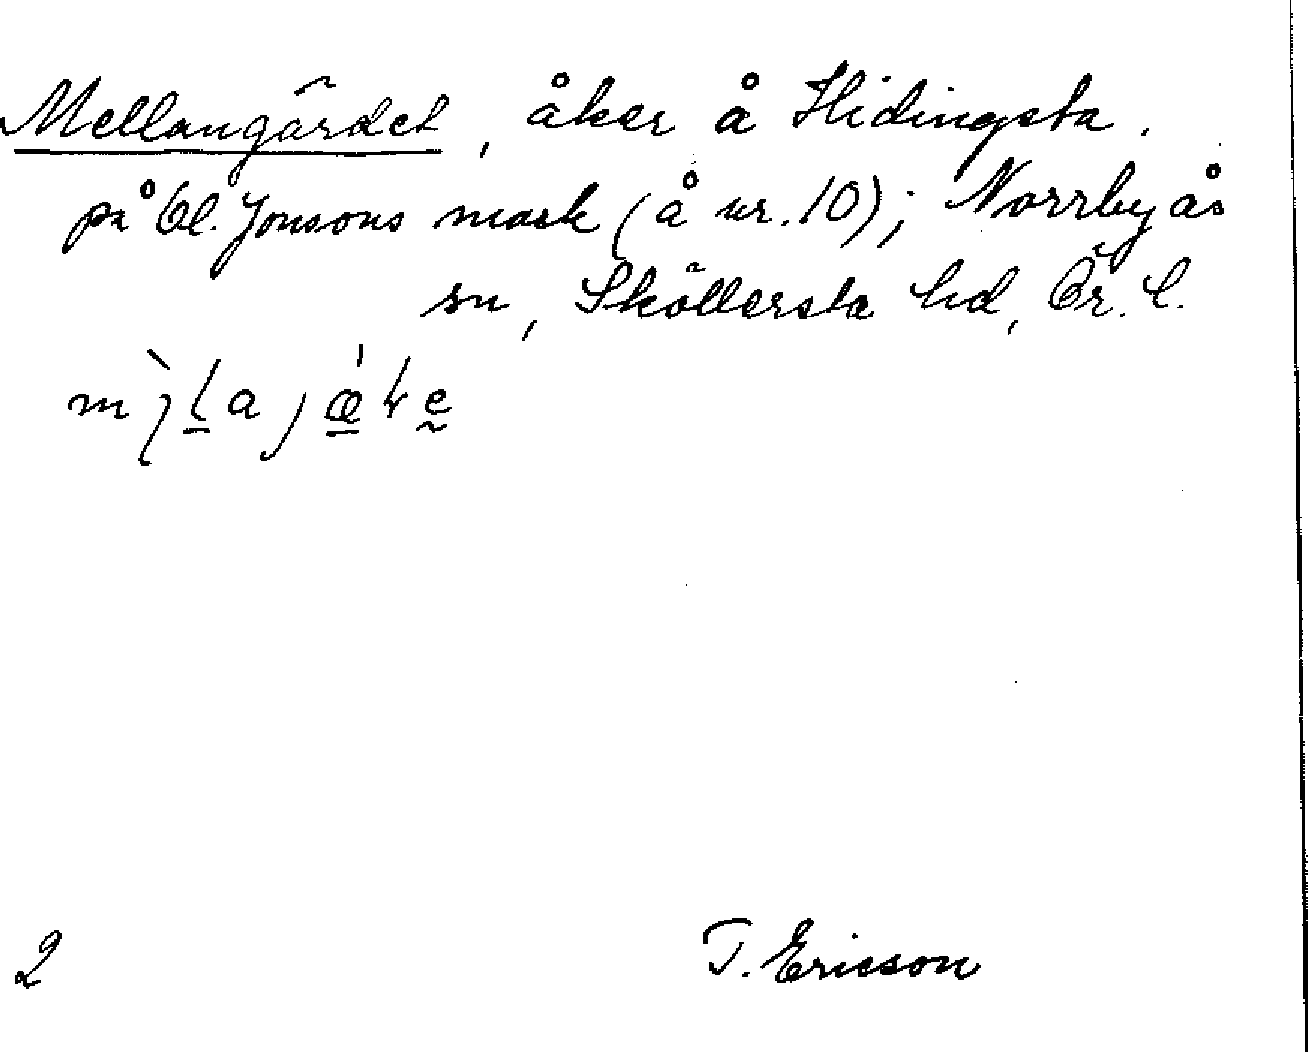 Mellangärdet, åker å Hidingsta.
på Cl. Jonsons mark (å nr. 10); Norrbyås
sn, Sköllersta hd, Ör. l.
2
T. Ericson